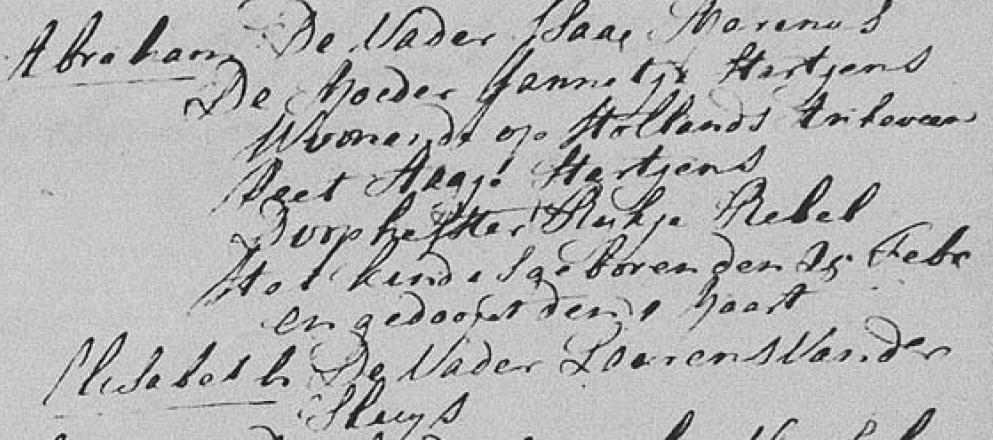 Abraham De Vader Isaac Marenus
De Moeder Jannetje Hartjens
Woonende op Hollands Ankeveen
Peet Aagje Hartjens
Dorphefster Rebel
Het kind is geboren den 25 Febr
en gedoopt den 1 Maart
Elisabeth De Vader Laurens Vander
Sluys